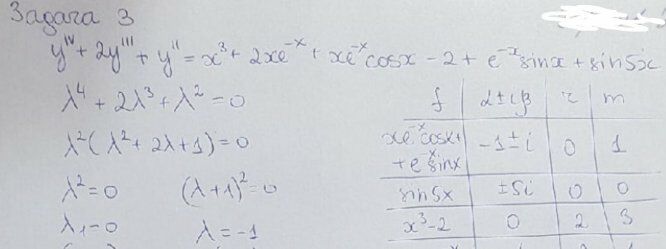 Задача 3
y^{IV} + 2y''' + y'' = x³ + 2xe^{-x} + xe^{-x}cosx - 2 + e^{-x}sinx + sin5x
λ⁴ + 2λ³ + λ² = 0
λ²(λ² + 2λ + 1) = 0
λ² = 0 (λ+1)² = 0
λ₁ = 0 λ = -1
f | α±iβ | r | m
xe^{-x}cosx + + e^{-x}sinx | -1±i | 0 | 1
sin5x | ±5i | 0 | 0
x³-2 | 0 | 2 | 3